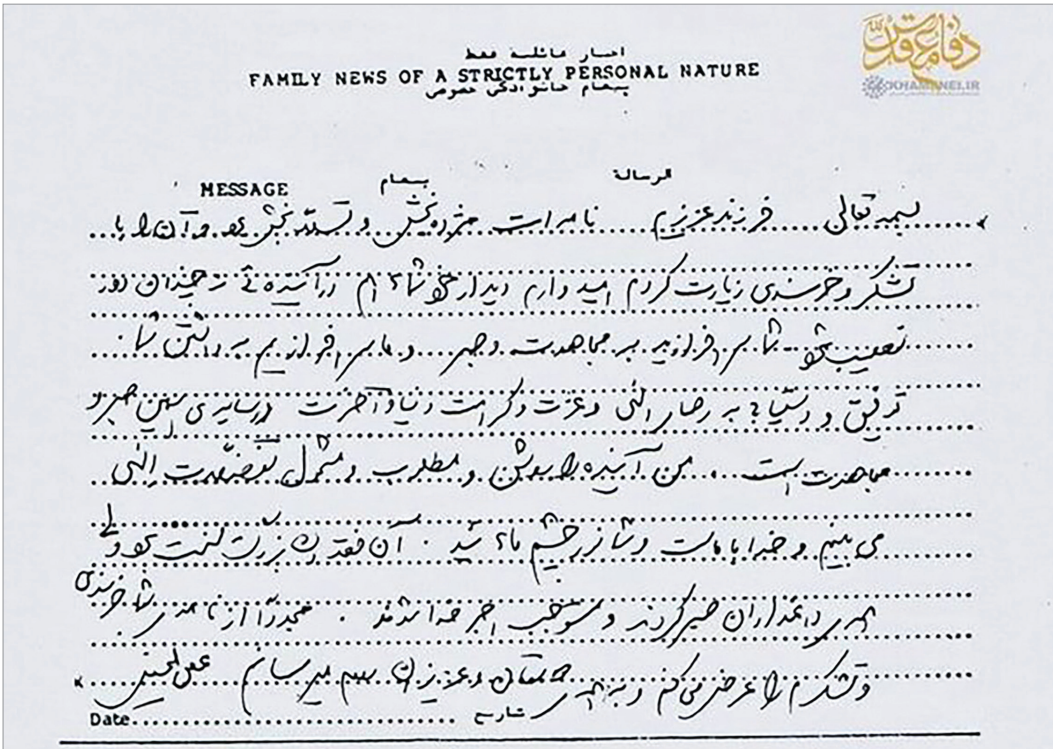 دفاع مقدس
KHAMENEI.IR
اخبار عائلية فقط
FAMILY NEWS OF A STRICTLY PERSONAL NATURE
پیغام خانوادگی خصوصی
MESSAGE پیغام الرسالة
بسمه تعالی فرزند عزیزم نامه‌ات مژده‌بخش و بود و آن را با
تشکر و خرسندی زیارت کردم امیدوارم دیدار شما هم در آینده‌ئی نه چندان دور
شما سرافرازید به مجاهدت و صبر و ما سرافرازیم به داشتن شما
توفیق و دستیابی به رضای الهی و عزت و کرامت دنیا و آخرت در سایه‌ی همین صبر و
مجاهدت است من آینده را روشن و مطلوب و مشمول الهی
می بینم و خدا با ماست و شما نور چشم مائید آن فقدان بزرگ بود ولی
همه‌ی داغداران صبر کردند و مستوجب اجر خدا شدند مجددا از نامه‌ی شما خرسندی
و تشکرم را عرض می کنم و به همه‌ی و عزیزان سلام میرسانم
Date تاریخ